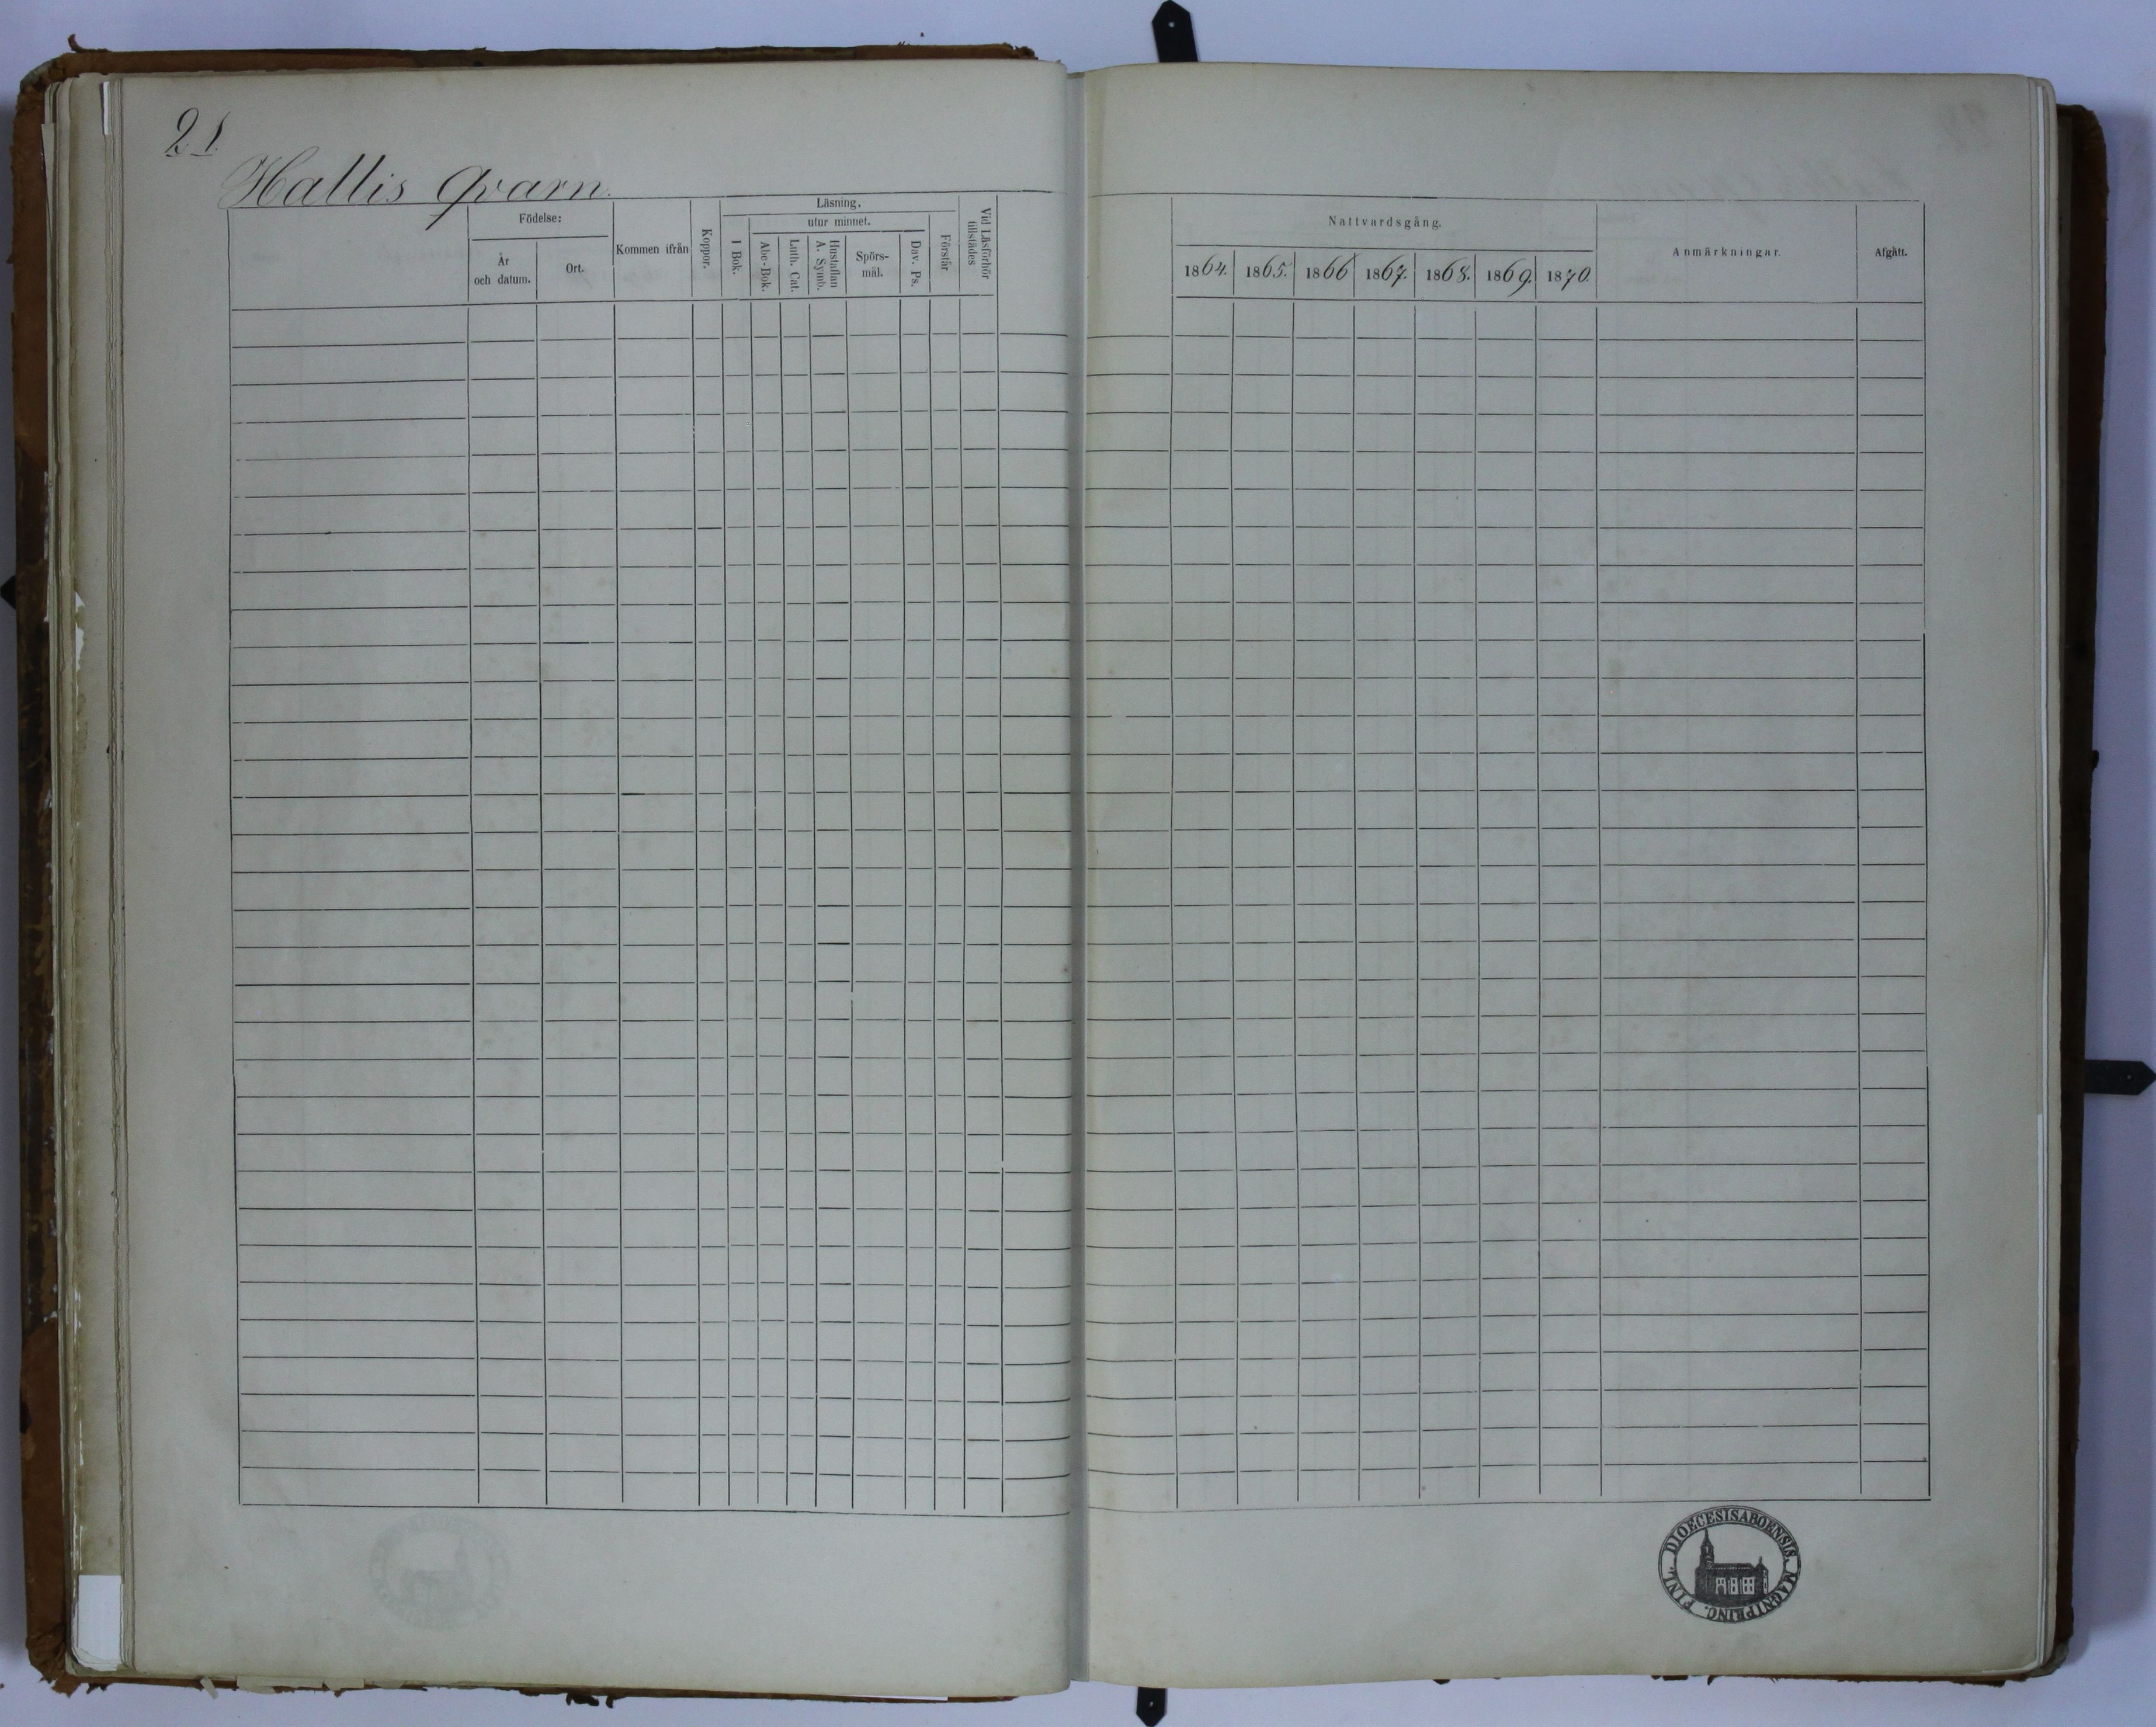 21.
Hallis Qvarn.
Födelse:
År
och datum.
Ort.
Kommen ifrån
Koppor.
Läsning,
utur minnet.
I Bok.
Abc-Bok.
Luth. Cat.
Hustaflan
A. Symb.
Spörs-
mål.
Dav. Ps.
Förstår
Vid Läsförhör
tillstädes
Nattvardsgång.
1864. 1865. 1866 1867. 1868. 1869. 1870.
Anmärkningar.
Afgått.
DIOECESIS ABOENSIS. MAGNI PRINC. FINL.